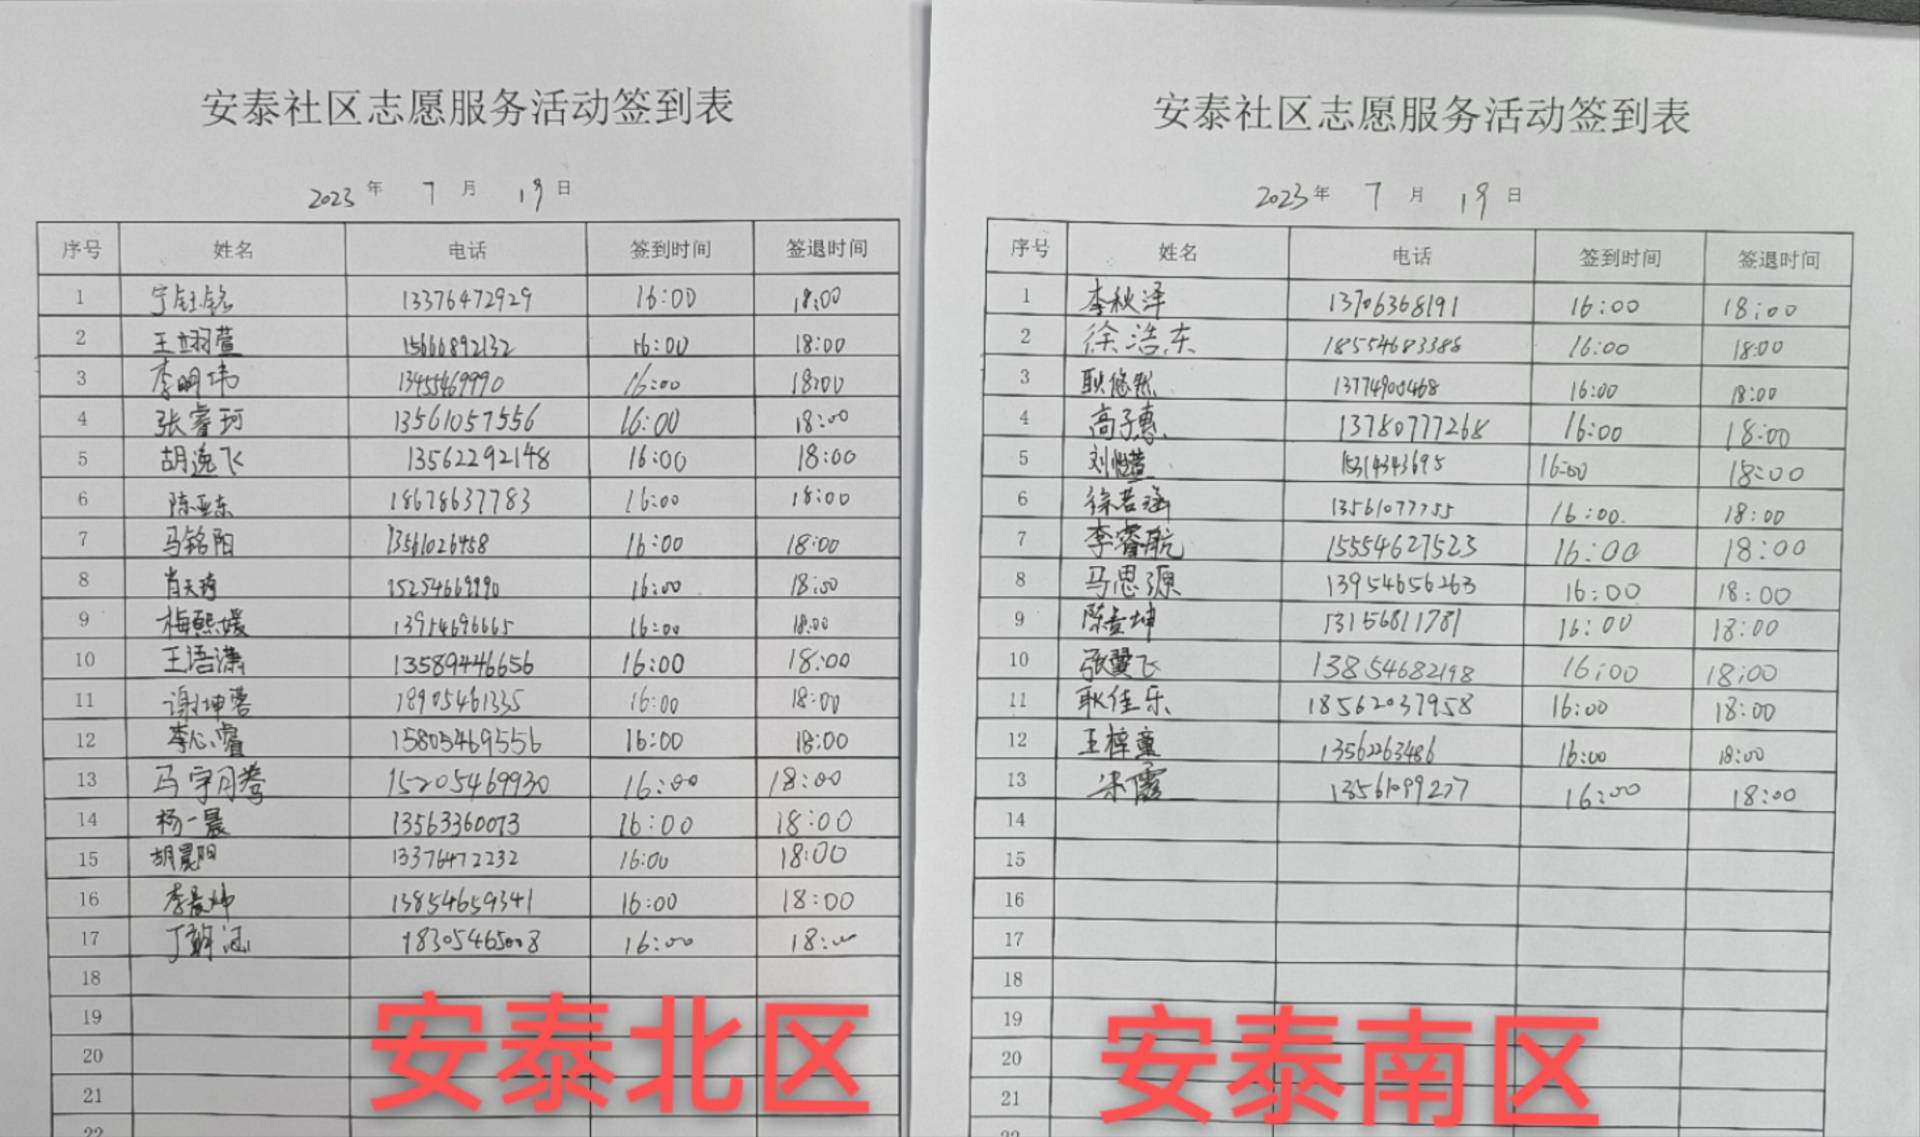 安泰社区志愿服务活动签到表
2023年 7月 19日
序号 姓名 电话 签到时间 签退时间
1 宁钰铭 13376472929 16:00 18:00
2 王翊萱 15666892132 16:00 18:00
3 李明玮 13455469990 16:00 18:00
4 张睿珂 13561057556 16:00 18:00
5 胡逸飞 13562292148 16:00 18:00
6 陈亚东 18678637783 16:00 18:00
7 马铭阳 13561026458 16:00 18:00
8 肖天琦 15254669990 16:00 18:00
9 梅熙媛 13954696665 16:00 18:00
10 王语潇 13589446656 16:00 18:00
11 谢坤蓉 18905461335 16:00 18:00
12 李心睿 15805469556 16:00 18:00
13 马宇 15205469930 16:00 18:00
14 杨一晨 13563360073 16:00 18:00
15 胡晨阳 13376472232 16:00 18:00
16 李晨炜 13854659341 16:00 18:00
17 丁 涵 18305465008 16:00 18:00
18
19
20
21
22
安泰北区
安泰社区志愿服务活动签到表
2023年 7月 19日
序号 姓名 电话 签到时间 签退时间
1 李秋泽 13706368191 16:00 18:00
2 徐浩东 18554683386 16:00 18:00
3 耿悠然 13774900468 16:00 18:00
4 高子惠 13780777268 16:00 18:00
5 刘 萱 15314343695 16:00 18:00
6 徐若涵 13561077755 16:00 18:00
7 李睿航 15554627523 16:00 18:00
8 马思源 13954656263 16:00 18:00
9 陈 坤 13156811781 16:00 18:00
10 张翼飞 13854682198 16:00 18:00
11 耿佳乐 18562037958 16:00 18:00
12 王梓童 13562263486 16:00 18:00
13 宋儒 13561099277 16:00 18:00
14
15
16
17
18
19
20
21
22
安泰南区